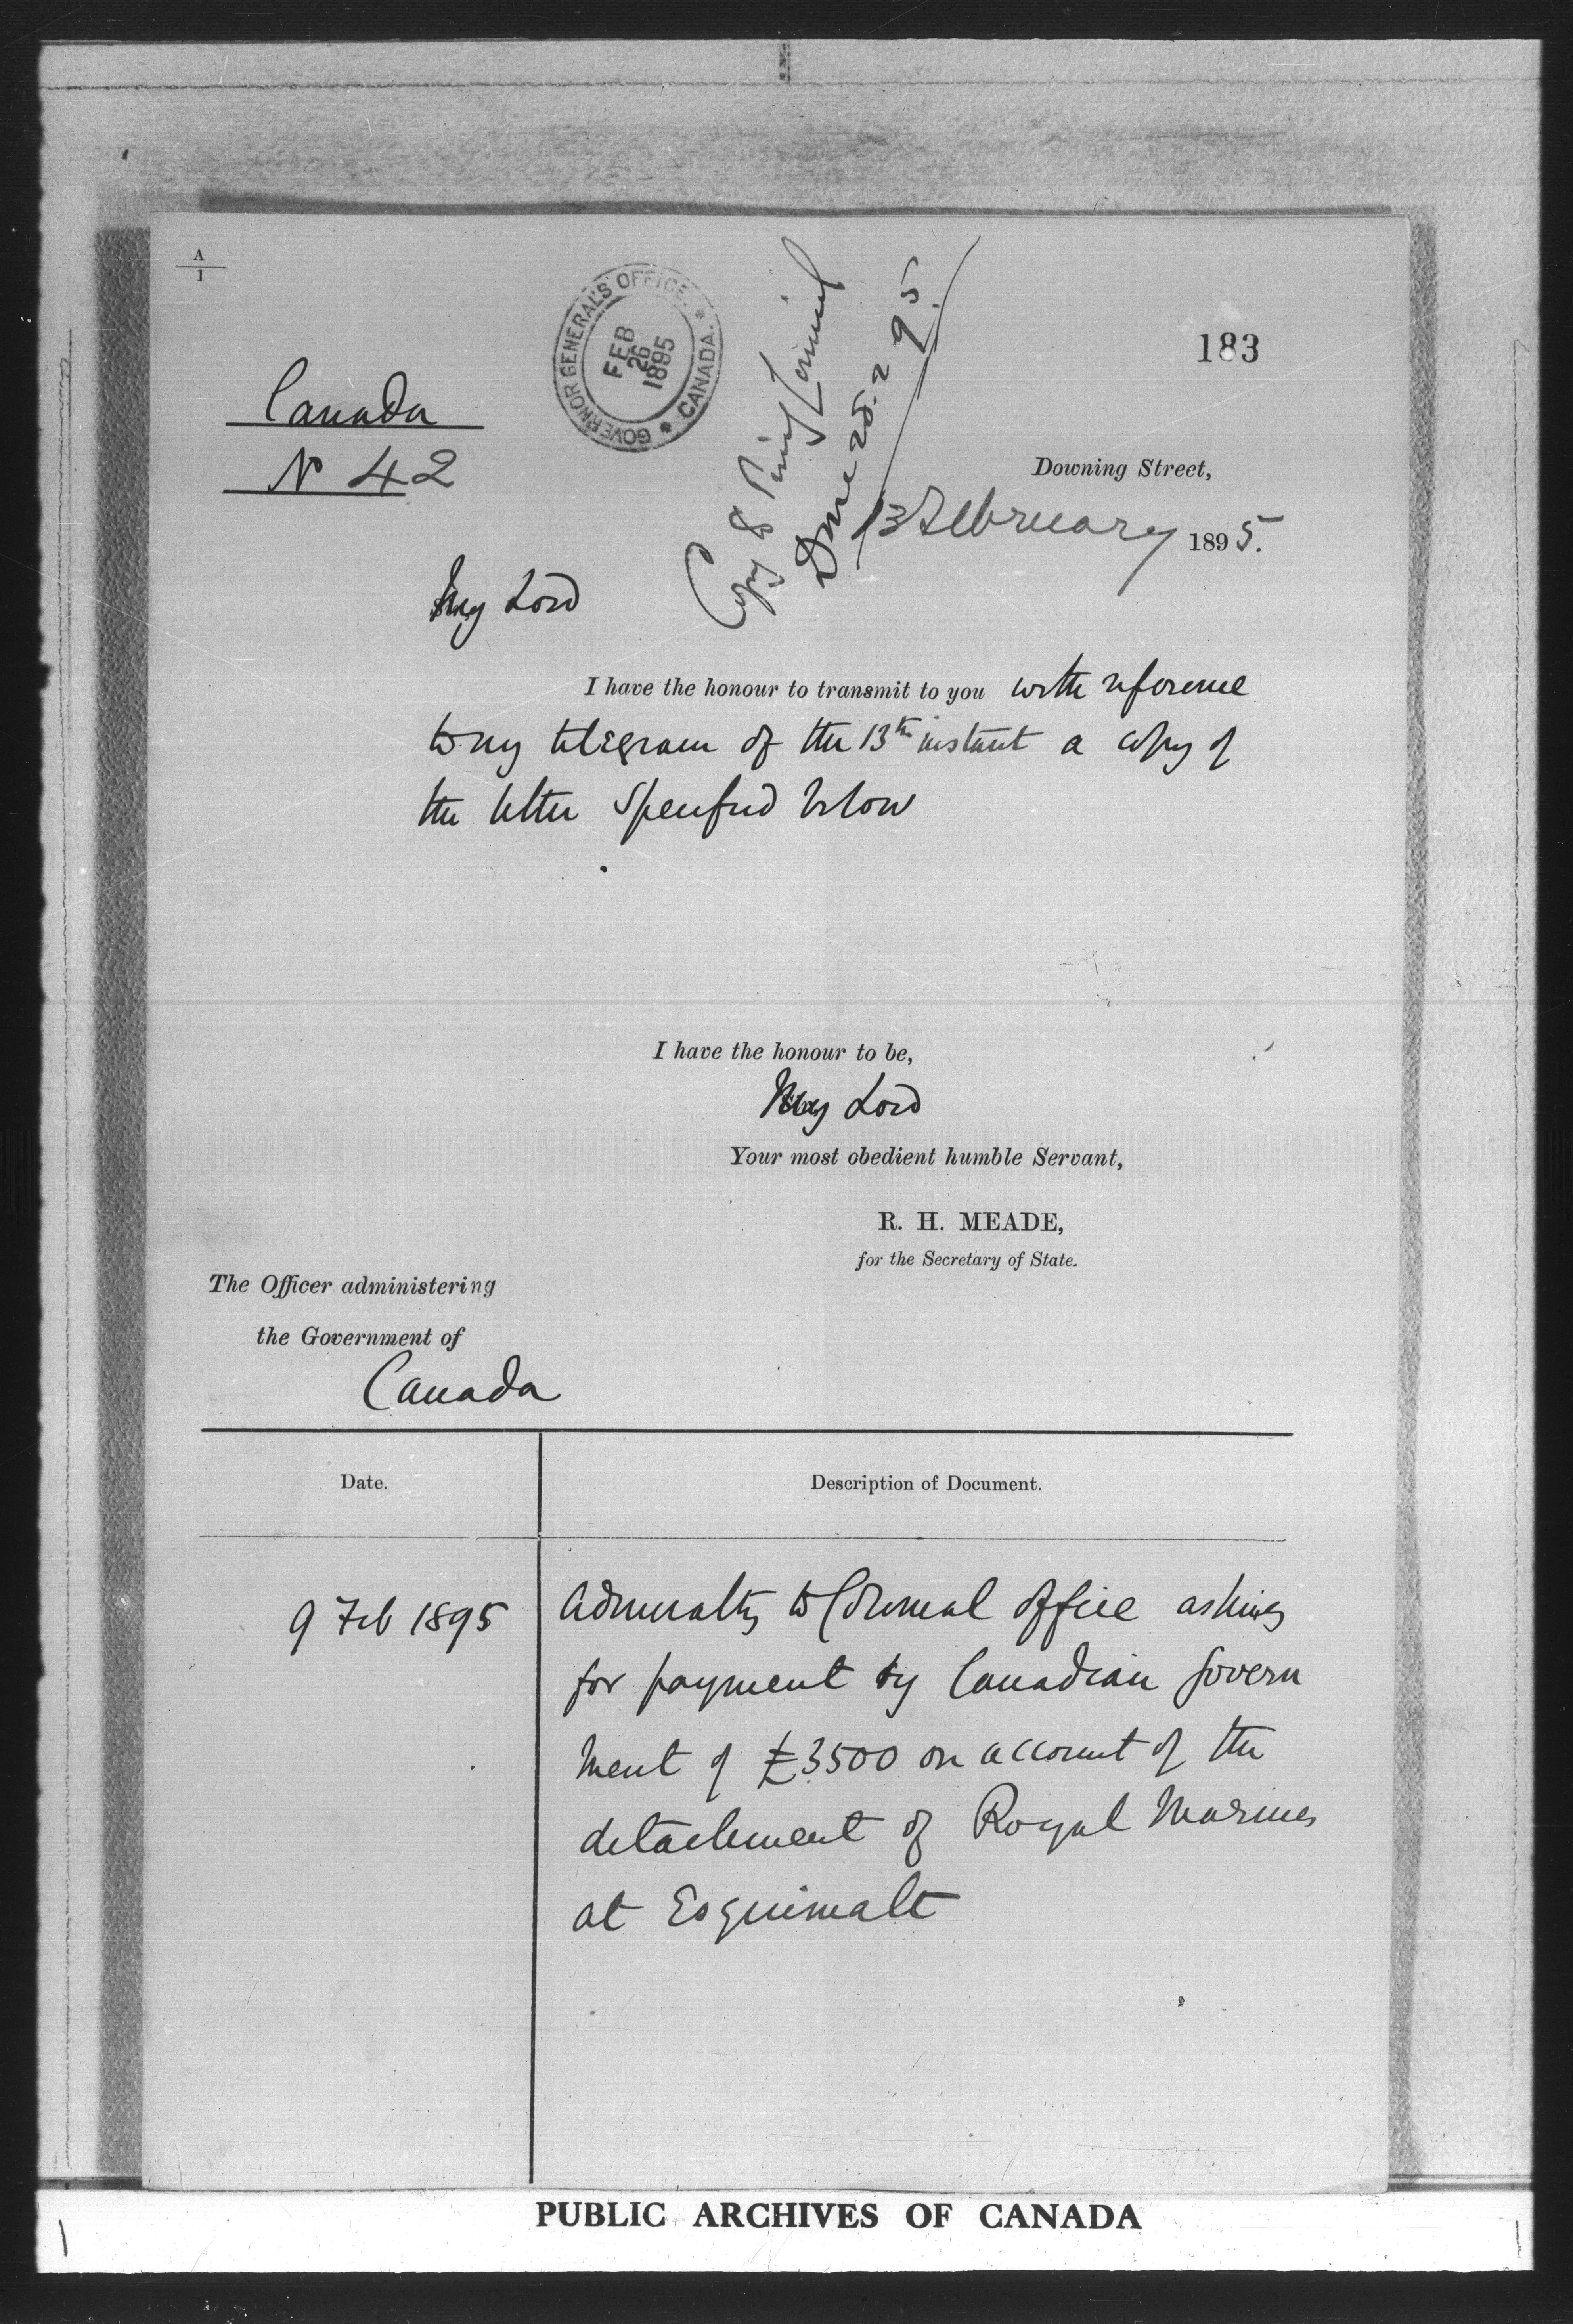 A
1
GOVERNOR GENERAL'S OFFICE. * CANADA. *
FEB
26
1895
Copy to Privy Council
Done 28.2.95.
183
Canada
No 42
Downing Street,
13 February 1895.
My Lord
I have the honour to transmit to you with reference
to my telegram of the 13th instant a copy of
the letter specified below
I have the honour to be,
My Lord
Your most obedient humble Servant,
R. H. MEADE,
for the Secretary of State.
The Officer administering
the Government of
Canada
Date.
Description of Document.
9 Feb 1895
Admiralty to Colonial Office asking
for payment by Canadian Govern
ment of £3500 on account of the
detachment of Royal Marines
at Esquimalt
PUBLIC ARCHIVES OF CANADA